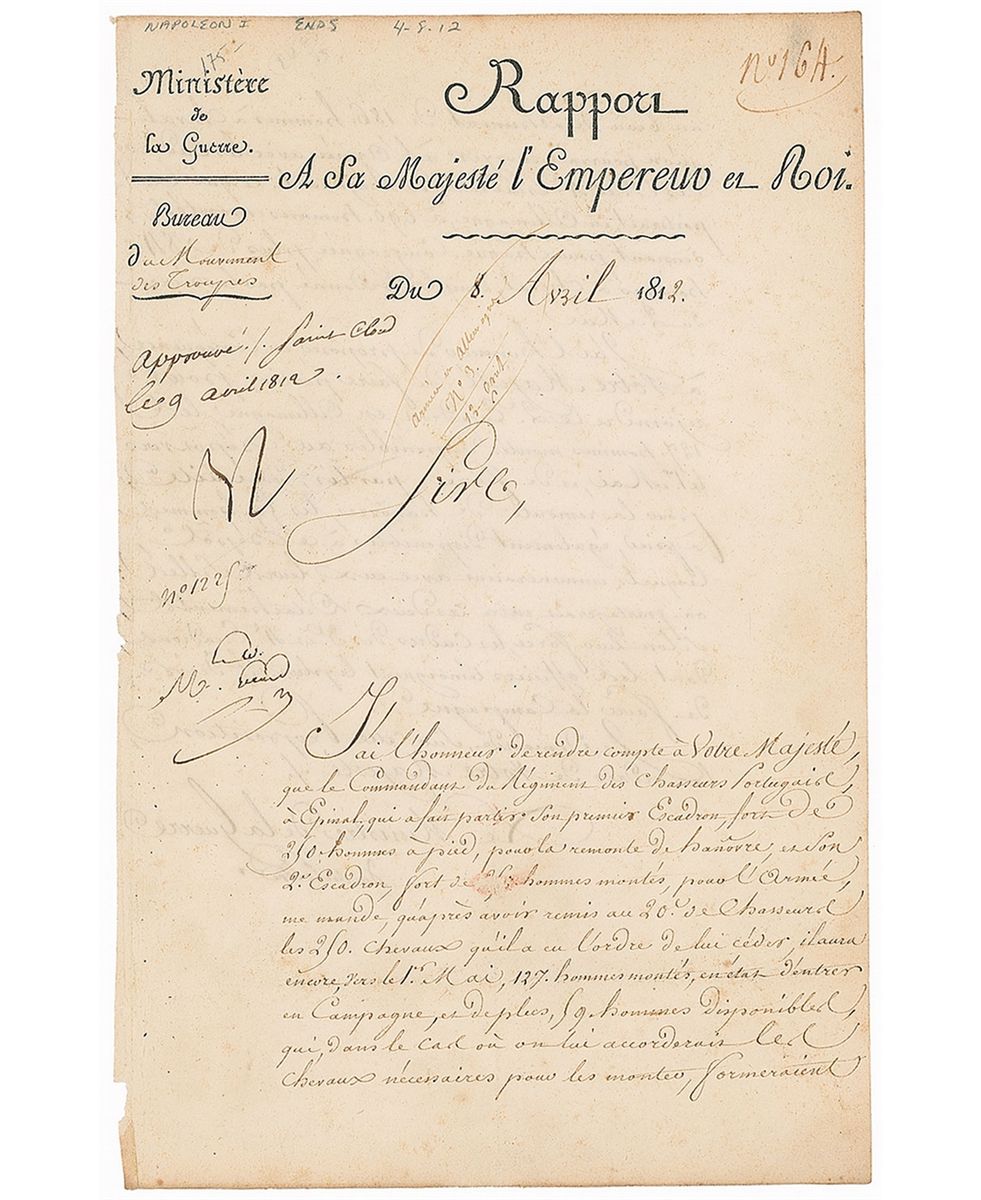 NAPOLEON I ENDS 4-8.12
175-
No 164.
Ministère
de
la Guerre.
Rapport
A Sa Majesté l'Empereur et Roi.
Bureau
du Mouvement
des Troupes
Du 8. Avril 1812.
approuvé /. Saint Cloud
le 9 avril 1812.
armée en allemagne
No 3.
13
Sire,
No 1225
M.
J'ai l'honneur de rendre compte à Votre Majesté,
que le Commandant du Régiment des Chasseurs Portugais,
à Epinal, qui a fait partir son premier Escadron, fort de
250. hommes à pied, pour la remonte de hanôvre, et Son
2e. Escadron, fort de hommes montés, pour l'Armée,
me mande, qu'après avoir remis au 20e. de Chasseurs
les 250. chevaux qu'il a eu l'ordre de lui céder, il aura
encore, vers le 1er. Mai, 127. hommes montés, en état d'entrer
en Campagne, et de plus, 59. hommes disponibles,
qui, dans le cas où on lui accorderait les
chevaux nécessaires pour les monter, formeraient